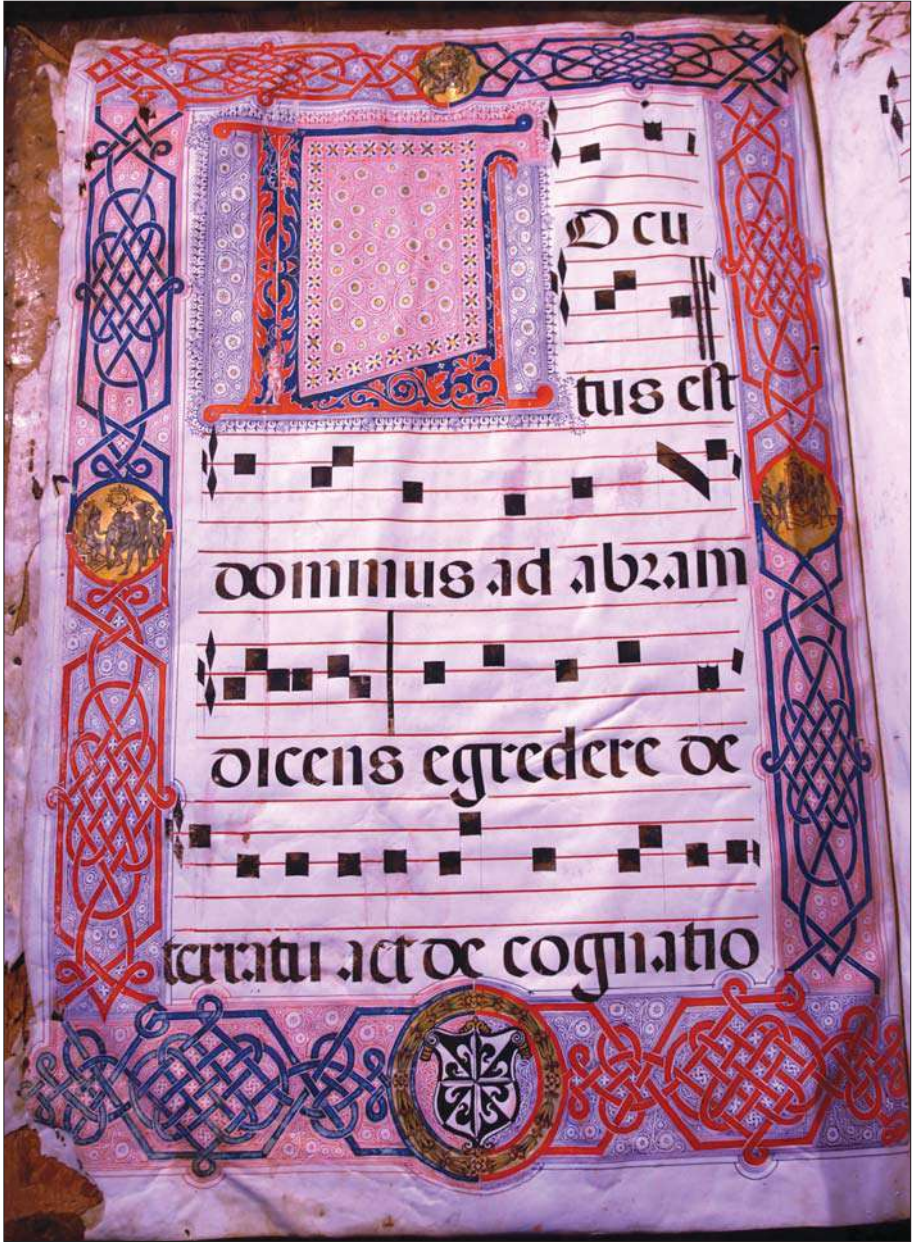 LOcu
tus est
dominus ad abram
dicens egredere de
terra tua et de cognatio